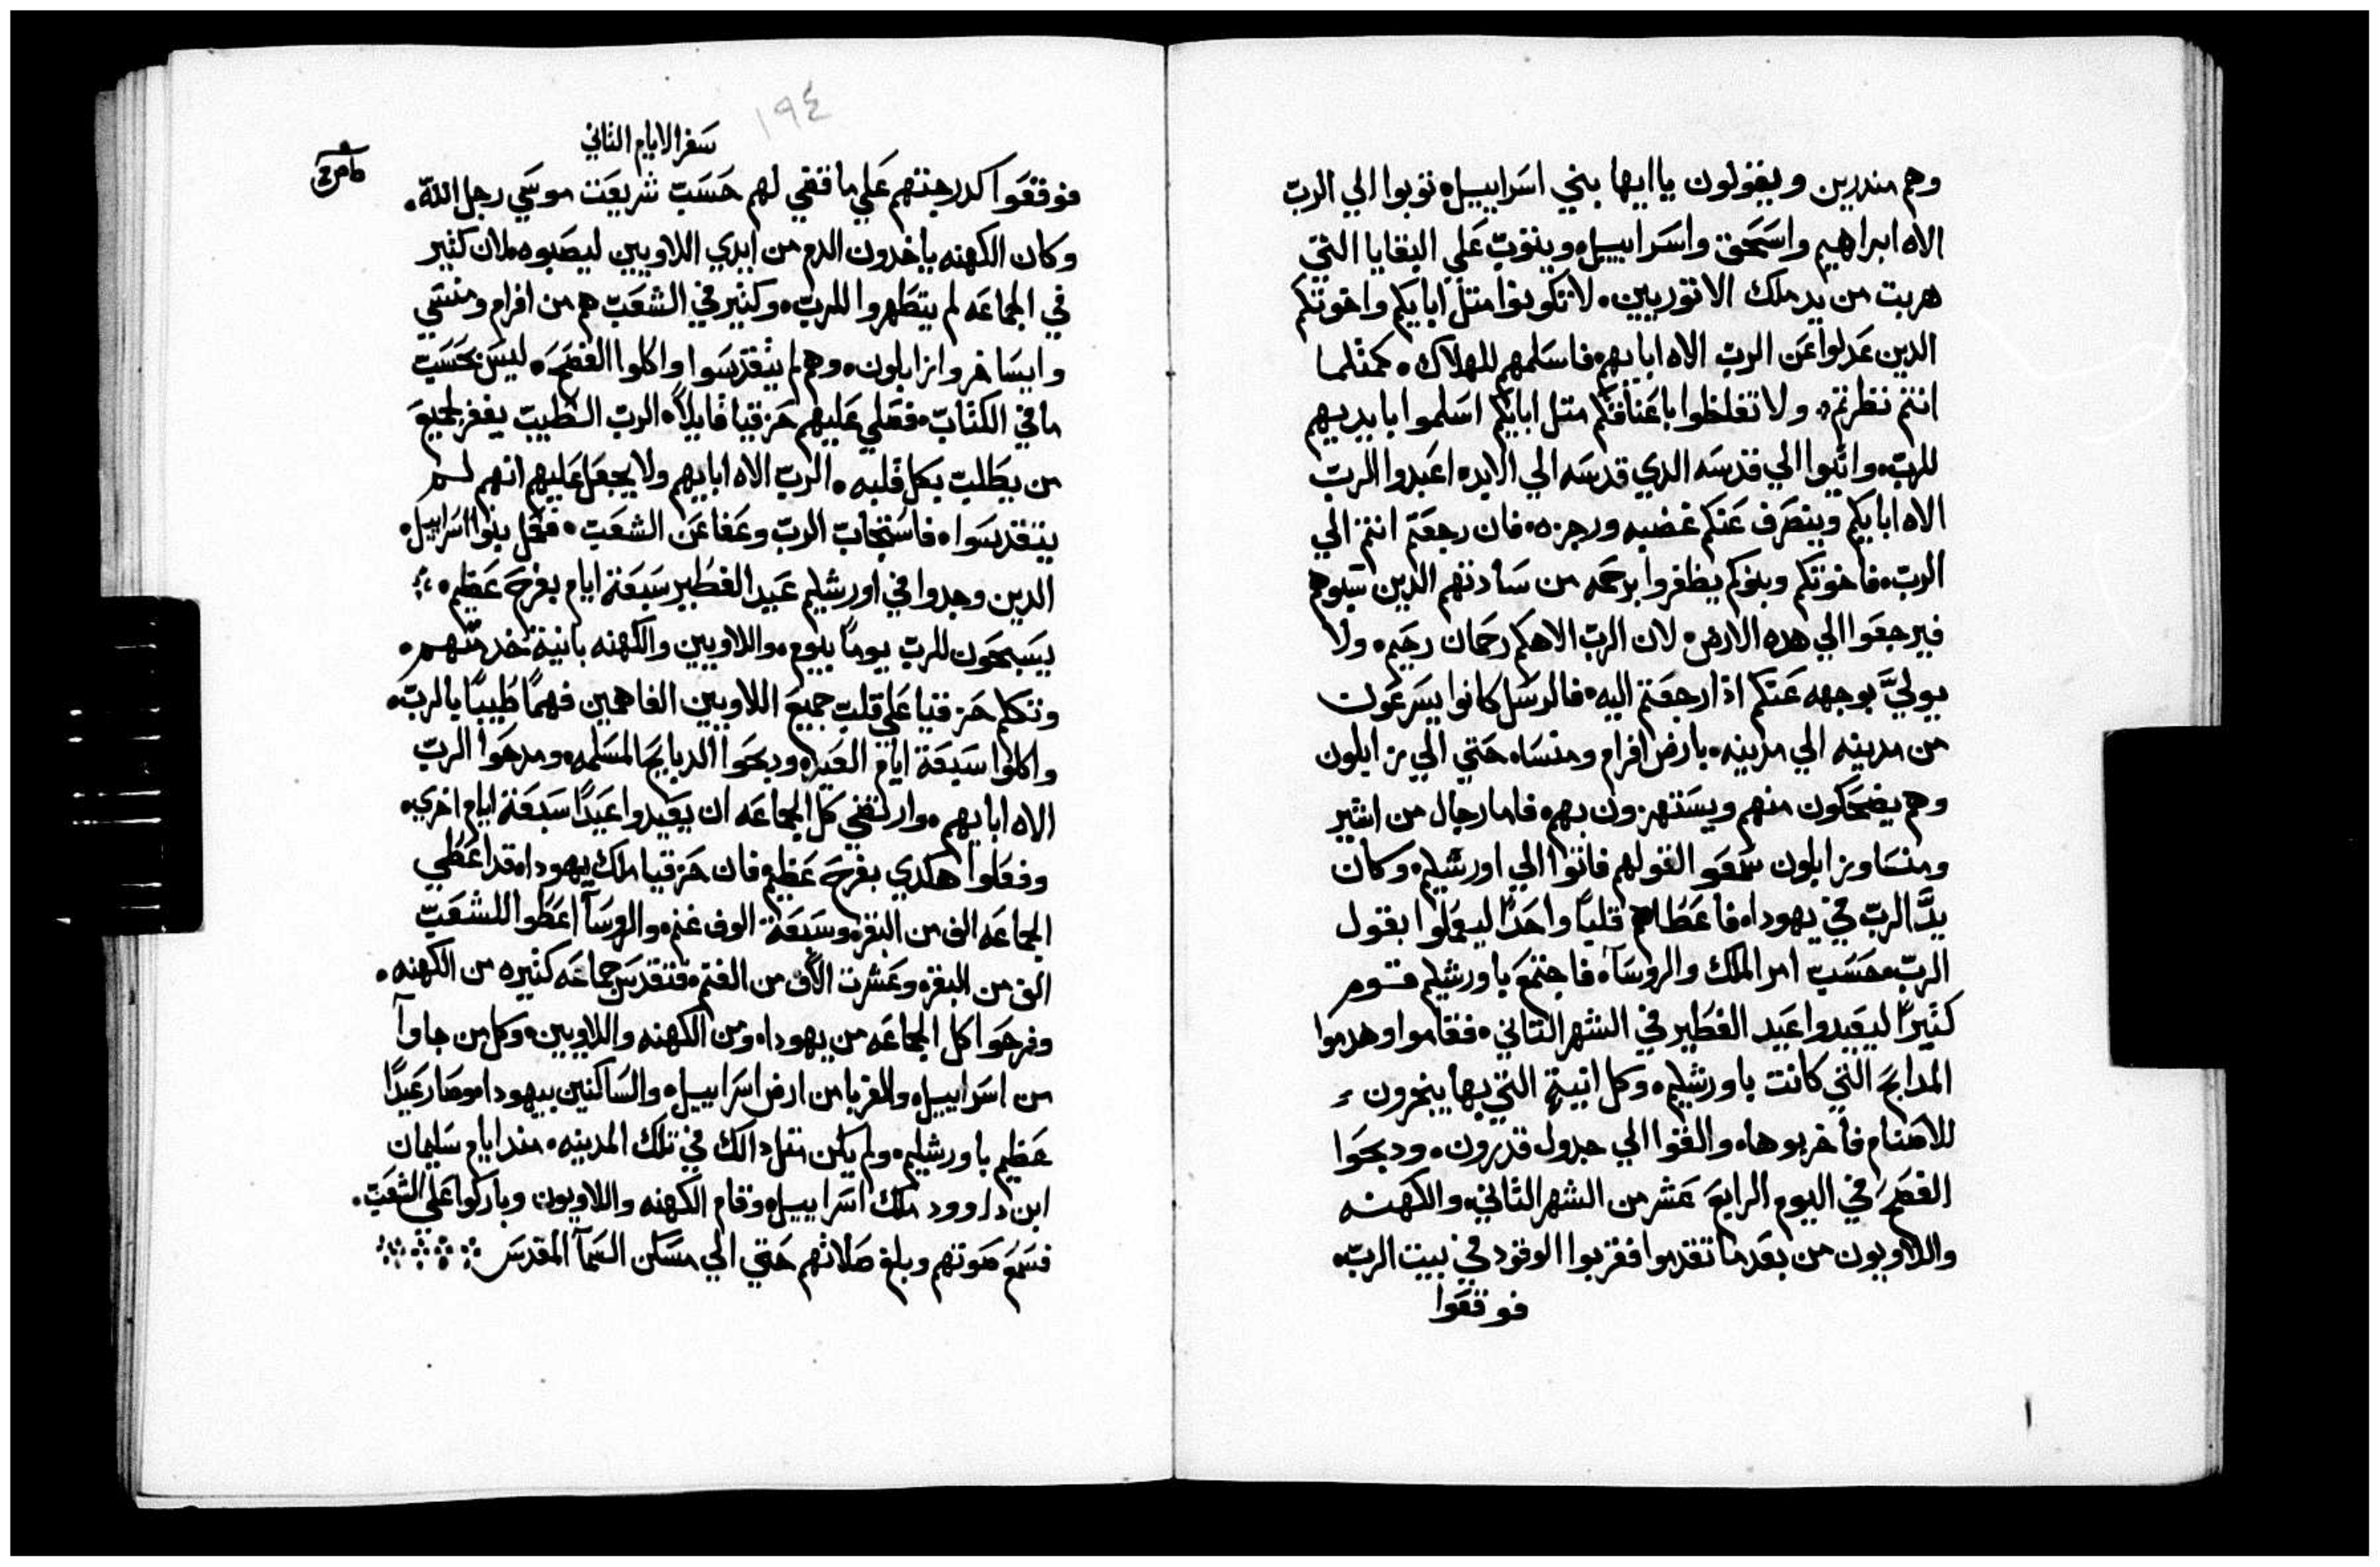 وهم منذرين ويقولون يا ايها بني اسراييل توبوا الي الرب
الاه ابراهيم واسحق واسراييل ويتوب علي البقايا التي
هربت من يد ملك الاتوريين. لا تكونوا متل ابايكم واخوتكم
الدين عدلوا عن الرب الاه ابايهم فاسلمهم للهلاك. كمثلما
انتم نظرتم. ولا تغلظوا باعناقكم متل ابايكم اسلموا بايديهم
للرب. واتوا الي قدسه الدي قدسه الي الابد. اعبدوا الرب
الاه ابايكم وينصرف عنكم غضبه ورجزه. فان رجعتم انتم الي
الرب. فاخوتكم وبنوكم يظفروا برحمه من سادتهم الدين سبوهم
فيرجعوا الي هده الارض. لان الرب الاهكم رحمان رحيم. ولا
يولي بوجهه عنكم ادا رجعتم اليه. فالرسل كانوا يسرعون
من مدينه الي مدينه. بارض افرام ومنسا. حتي الي زابلون
وهم يضحكون منهم ويستهزون بهم. فاما رجال من اشير
ومنسا وزابلون سمعوا لقولهم فاتوا الي اورشليم. وكان
يد الرب في يهودا. فاعطاهم قلبا واحدا ليعملوا بقول
الرب. حسب امر الملك والروسآ. فاجتمع باورشليم قوم
كتيرا ليعيدوا عيد الفطير في الشهر التاني. فقاموا وهدموا
المدابح التي كانت باورشليم. وكل انية التي بها يبخرون
للاصنام فاخربوها. والقوا الي جدول قدرون. ودبحوا
الفصح في اليوم الرابع عشر من الشهر التاني. والكهنه
واللاويون من بعد ما تقدموا فقربوا الوقود في بيت الرب.
فوقفوا
١٩٤
سفر الايام التاني
فوقفوا كدرجتهم علي ما قضي لهم حسب شريعت موسي رجل الله.
وكان الكهنه ياخدون الدم من ايدي اللاويين ليصبوه. لان كتير
في الجماعه لم يتطهروا للرب. وكتير في الشعب هم من افرام ومنسي
وايساخر وزابلون. وهم لم يتقدسوا واكلوا الفصح. ليس بحسب
ما في الكتاب. فصلي عليهم حزقيا قايلا. الرب الطيب يغفر لجميع
من يطلب بكل قلبه. الرب الاه ابايهم ولا يجعل عليهم انهم لم
يتقدسوا. فاستجاب الرب وعفا عن الشعب. فعمل بنوا اسراييل
الدين وجدوا في اورشليم عيد الفطير سبعة ايام بفرح عظيم.
يسبحون للرب يوما بيوم. واللاويين والكهنه بانية خدمتهم.
وتكلم حزقيا علي قلب جميع اللاويين الفاهمين فهما طيبا بالرب.
واكلوا سبعة ايام العيد. ودبحوا الدبايح المسلمه. ومدحوا الرب
الاه ابايهم. وارتضي كل الجماعه ان يعيدوا عيدا سبعة ايام اخري.
وفعلوا هكدي بفرح عظيم. فان حزقيا ملك يهودا. قد اعطي
الجماعه الف من البقر. وسبعة الوف غنم. والروسآ اعطوا للشعب
الف من البقر. وعشرت الاف من الغنم. فتقدس جماعه كتيره من الكهنه.
وفرحوا كل الجماعه من يهودا. ومن الكهنه واللاويين. وكل من جاوآ
من اسراييل. والغربا من ارض اسراييل. والساكنين بيهودا. وصار عيدا
عظيم باورشليم. ولم يكن متل دالك في تلك المدينه. مند ايام سليمان
ابن داوود ملك اسراييل. وقام الكهنه واللاويون وباركوا علي الشعب.
فسمع صوتهم وبلغ صلاتهم حتي الي مسكن السمآ المقدس